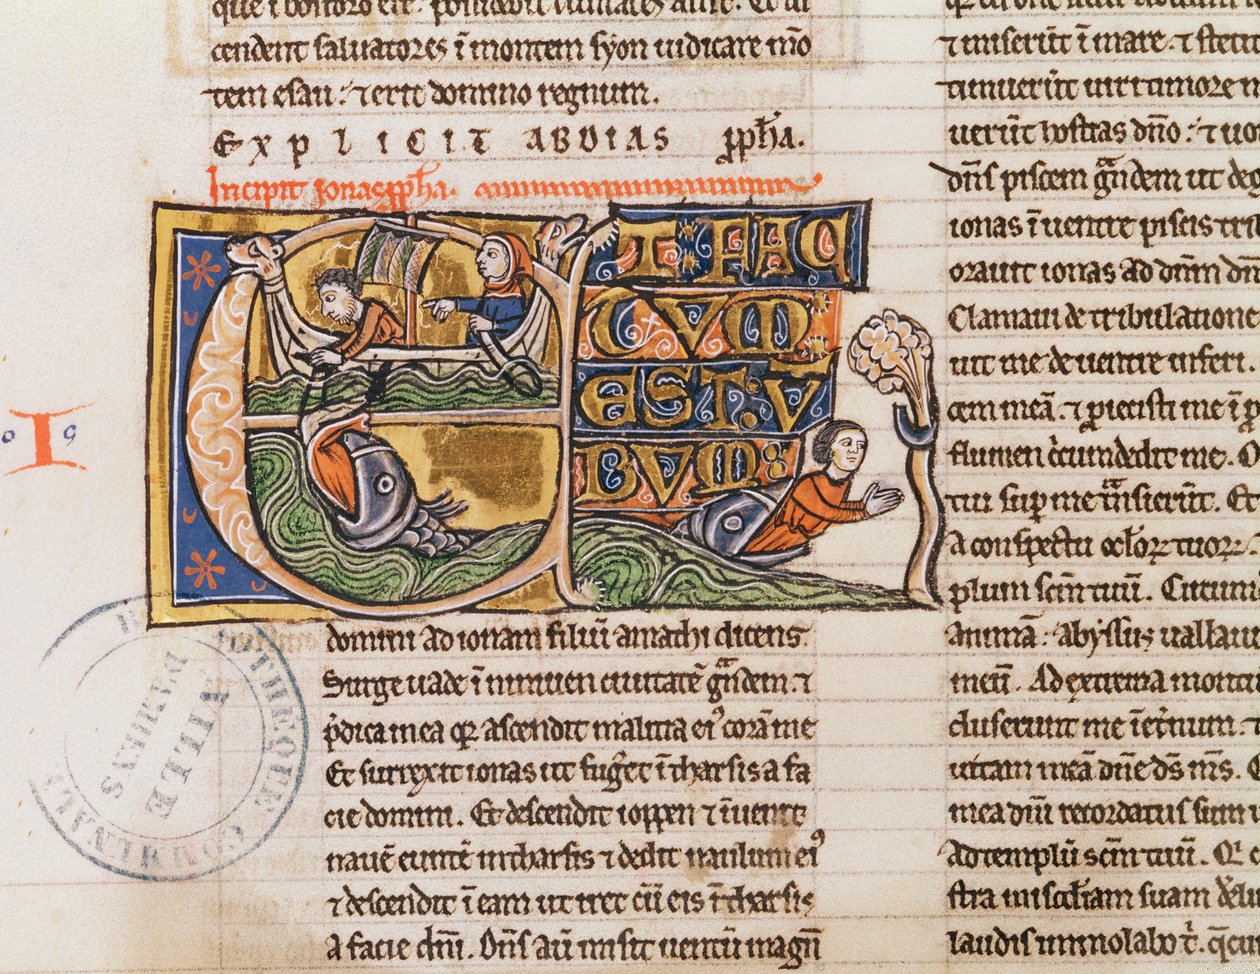 cendent saluatores ī montem syon iudicare mō
tem esau. ⁊ erit domino regnum.
EXPLICIT ABDIAS ꝓph̄a.
Incipit Jonas ꝓph̄a.
ET FAC
TVM
EST V
BVM
domini ad ionam filiū amathi dicens.
Surge uade ī niniuen ciuitatē gͣndem. ⁊
p̄dica in ea qꝛ ascendit malitia eiꝰ corā me
Et surrexit ionas ut fug̓et ī tharsis a fa
cie domini. Et descendit ioppen ⁊ īuenit
nauē euntē in tharsis ⁊ dedit naulum eiꝰ
⁊ descendit ī eam ut iret cū eis ī tharsis
a facie dn̄i. Dn̄s aū misit uentū magn̄
I
⁊ miserūt ī mare. ⁊ stetit
timuerūt uiri timore
uerūt hostias dn̄o. ⁊
dn̄s piscem gͣndem ut
ionas ī uentre piscis
orauit ionas ad dn̄m
Clamaui de tribulatione
uit me de uentre inferi.
cem meā. ⁊ proiecisti me ī
flumen circundedit me.
tui sup me tͣnsierūt. Et
A conspectu oculoꝝ tuoꝝ
plum scm̄ tuū.
animā. abyssus uallauit
meū. Ad extrema montiū
cluserunt me ī et̓num. ⁊
uitam meā dn̄e ds̄ ms̄.
mea dn̄i recordatus sum
ad templū scm̄ tuū.
stra misc̄diam suam
laudis immolabo t̄.
BIBLIOTHEQUE COMMUNALE
VILLE
DE REIMS